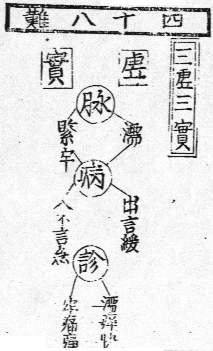 四十八難
三虛三實
虛
實
脉
濡
緊牢
病
出言緩
入不言急
診
濡
牢痛